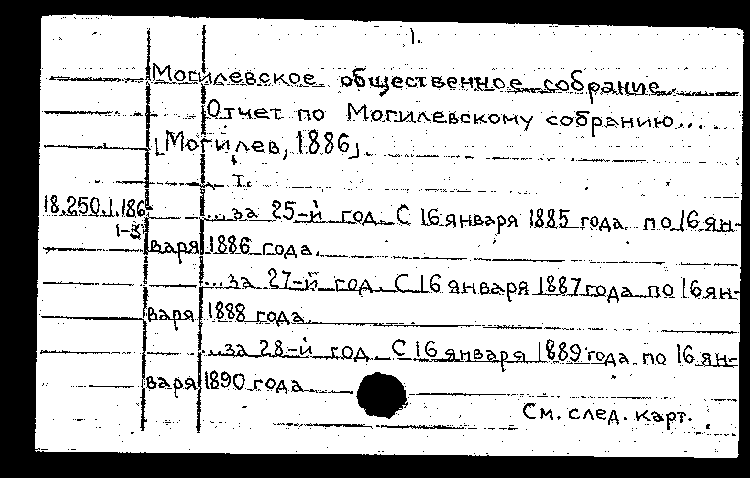 1.
Могилевское общественное собрание.
Отчет по Могилевскому собранию...
[Могилев, 1886].
Т.
18.250.1.186 ...за 25-й год. С 16 января 1885 года по 16 ян-
1-5
варя 1886 года.
...за 27-й год. С 16 января 1887 года по 16 ян-
варя 1888 года.
...за 28-й год. С 16 января 1889 года по 16 ян-
варя 1890 года
См. след. карт.